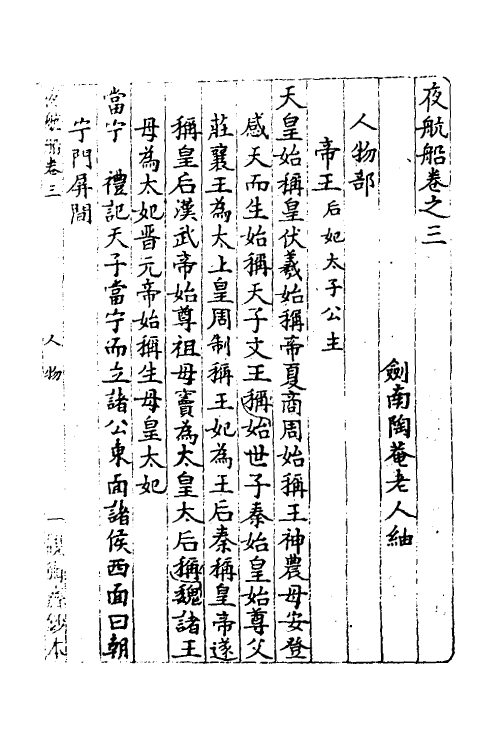 夜航船卷之三
劍南陶菴老人紬
人物部
帝王 后妃太子公主
天皇始稱皇伏羲始稱帝夏商周始稱王神農母安登
感天而生始稱天子文王稱始世子秦始皇始尊父
莊襄王為太上皇周制稱王妃為王后秦稱皇帝遂
稱皇后漢武帝始尊祖母竇為太皇太后稱魏諸王
母為太妃晋元帝始稱生母皇太妃
當宁 禮記天子當宁而立諸公東面諸侯西面曰朝
宁門屏間
夜航船卷三 人物 一 觀術齋鈔本